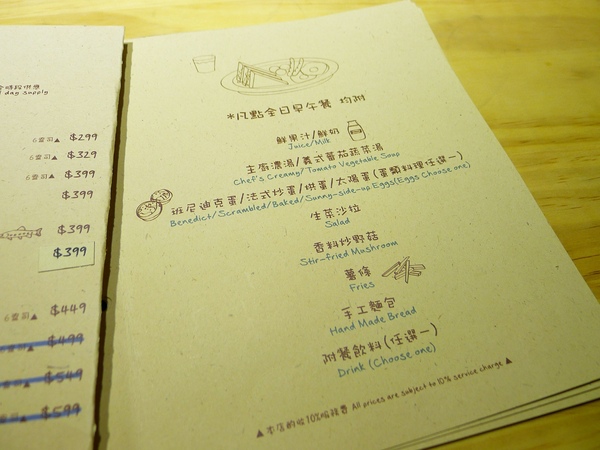 全時段供應
day supply
6盎司▲ $299
6盎司▲ $329
6盎司▲ $399
$399
$399
$399
6盎司▲ $449
$499
$549
$599
*凡點全日早午餐 均附
鮮果汁/鮮奶
Juice/Milk
主廚濃湯/義式蕃茄蔬菜湯
Chef's Creamy/Tomato Vegetable Soup
班尼迪克蛋/法式炒蛋/烘蛋/太陽蛋(蛋類料理任選一)
Benedict/Scrambled/Baked/Sunny-side-up Eggs(Eggs Choose one)
生菜沙拉
Salad
香料炒野菇
Stir-fried Mushroom
薯條
Fries
手工麵包
Hand Made Bread
附餐飲料(任選一)
Drink (Choose one)
▲本店酌收10%服務費 All prices are subject to 10% service charge▲